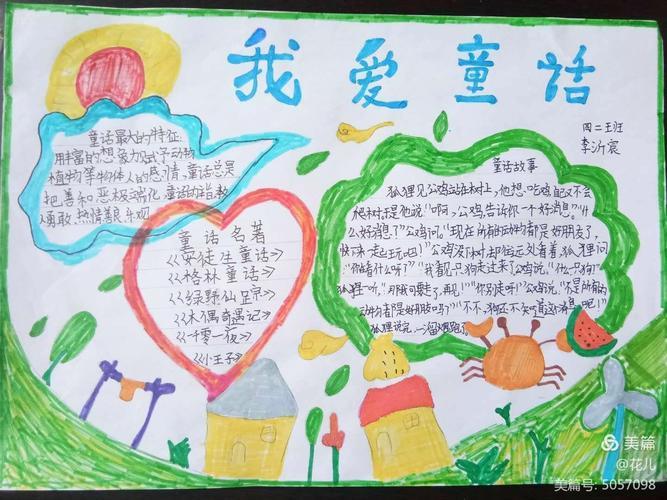 我爱童话
四二班
李沂宸
童话最大的特征:
用丰富的想象力赋予动物
植物等物体人的感情,童话总是
把善和恶极端化,童话的指教
勇敢,热情善良乐观
童话名著
《安徒生童话》
《格林童话》
《绿野仙踪》
《木偶奇遇记》
《一千零一夜》
《小王子》
童话故事
狐狸见公鸡站在树上,他想吃鸡自己又不会
爬树,于是他说"啊,公鸡,告诉你一个好消息""什
么好消息?"公鸡问,"现在所有的动物都是好朋友了,
快下来一起去玩吧!"公鸡没下树却往远处看着,狐狸问
"你看什么呀?""我看见一只狗走过来了"公鸡说,"什么?狗?"
狐狸一听,"那我可要走了,再见!""你别走呀!"公鸡说,"不是所有的
动物都是好朋友吗?""不,不,狗还不知道这个消息呢!"
狐狸说完,一溜烟跑了
美篇
@花儿
美篇号: 5057098